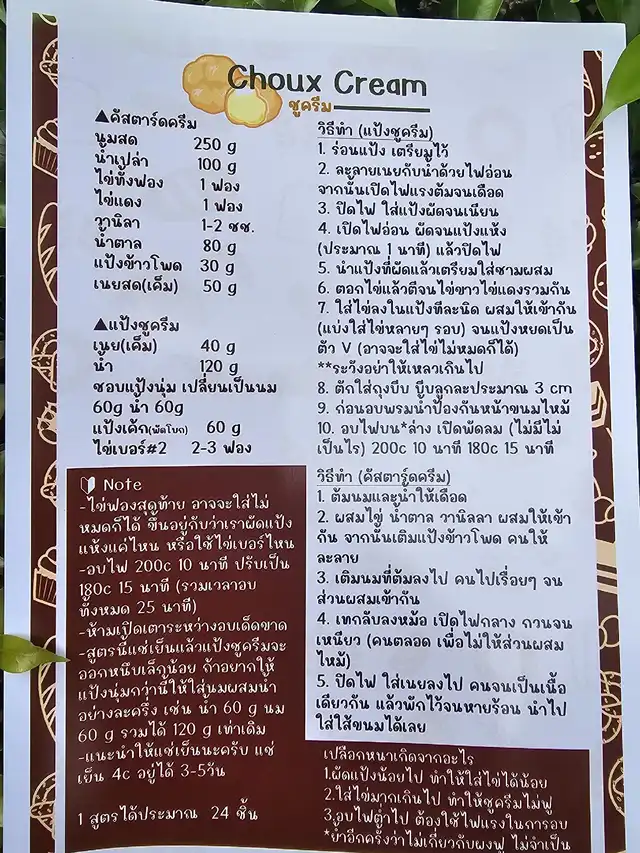 Choux Cream
ชูครีม
▲คัสตาร์ดครีม
นมสด 250 g
น้ำเปล่า 100 g
ไข่ทั้งฟอง 1 ฟอง
ไข่แดง 1 ฟอง
วานิลา 1-2 ชช.
น้ำตาล 80 g
แป้งข้าวโพด 30 g
เนยสด(เค็ม) 50 g
▲แป้งชูครีม
เนย(เค็ม) 40 g
น้ำ 120 g
ชอบแป้งนุ่ม เปลี่ยนเป็นนม
60g น้ำ 60g
แป้งเค้ก(พัดโบก) 60 g
ไข่เบอร์#2 2-3 ฟอง
Note
-ไข่ฟองสุดท้าย อาจจะใส่ไม่
หมดก็ได้ ขึ้นอยู่กับว่าเราผัดแป้ง
แห้งแค่ไหน หรือใช้ไข่เบอร์ไหน
-อบไฟ 200c 10 นาที ปรับเป็น
180c 15 นาที (รวมเวลาอบ
ทั้งหมด 25 นาที)
-ห้ามเปิดเตาระหว่างอบเด็ดขาด
-สูตรนี้แช่เย็นแล้วแป้งชูครีมจะ
ออกหนึบเล็กน้อย ถ้าอยากให้
แป้งนุ่มกว่านี้ให้ใส่นมผสมน้ำ
อย่างละครึ่ง เช่น น้ำ 60 g นม
60 g รวมได้ 120 g เท่าเดิม
-แนะนำให้แช่เย็นนะครับ แช่
เย็น 4c อยู่ได้ 3-5วัน
1 สูตรได้ประมาณ 24 ชิ้น
วิธีทำ (แป้งชูครีม)
1. ร่อนแป้ง เตรียมไว้
2. ละลายเนยกับน้ำด้วยไฟอ่อน
จากนั้นเปิดไฟแรงต้มจนเดือด
3. ปิดไฟ ใส่แป้งผัดจนเนียน
4. เปิดไฟอ่อน ผัดจนแป้งแห้ง
(ประมาณ 1 นาที) แล้วปิดไฟ
5. นำแป้งที่ผัดแล้วเตรียมใส่ชามผสม
6. ตอกไข่แล้วตีจนไข่ขาวไข่แดงรวมกัน
7. ใส่ไข่ลงในแป้งทีละนิด ผสมให้เข้ากัน
(แบ่งใส่ไข่หลายๆ รอบ) จนแป้งหยดเป็น
ตัว V (อาจจะใส่ไข่ไม่หมดก็ได้)
**ระวังอย่าให้เหลวเกินไป
8. ตักใส่ถุงบีบ บีบลูกละประมาณ 3 cm
9. ก่อนอบพรมน้ำป้องกันหน้าขนมไหม้
10. อบไฟบน*ล่าง เปิดพัดลม (ไม่มีไม่
เป็นไร) 200c 10 นาที 180c 15 นาที
วิธีทำ (คัสตาร์ดครีม)
1. ต้มนมและน้ำให้เดือด
2. ผสมไข่ น้ำตาล วานิลลา ผสมให้เข้า
กัน จากนั้นเติมแป้งข้าวโพด คนให้
ละลาย
3. เติมนมที่ต้มลงไป คนไปเรื่อยๆ จน
ส่วนผสมเข้ากัน
4. เทกลับลงหม้อ เปิดไฟกลาง กวนจน
เหนียว (คนตลอด เพื่อไม่ให้ส่วนผสม
ไหม้)
5. ปิดไฟ ใส่เนยลงไป คนจนเป็นเนื้อ
เดียวกัน แล้วพักไว้จนหายร้อน นำไป
ใส่ไส้ขนมได้เลย
เปลือกหนาเกิดจากอะไร
1.ผัดแป้งน้อยไป ทำให้ใส่ไข่ได้น้อย
2.ใส่ไข่มากเกินไป ทำให้ชูครีมไม่ฟู
3.อบไฟต่ำไป ต้องใช้ไฟแรงในการอบ
*ย้ำอีกครั้งว่าไม่เกี่ยวกับผงฟู ไม่จำเป็น